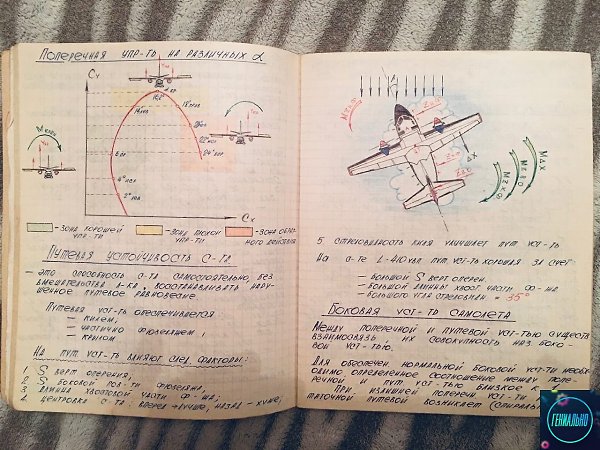 Поперечная упр-ть на различных α
Cy
Cx
6°
4°
2°
24°
- зона хорошей упр-ти
- зона плохой упр-ти
- зона обратного действия
Путевая устойчивость с-та
- это способность с-та самостоятельно, без
вмешательства л-ка, восстанавливать нару-
шенное путевое равновесие
Путевая уст-ть обеспечивается
- килем,
- частично фюзеляжем,
- крылом
На пут уст-ть влияют след. факторы:
1 S верт оперения,
2 S боковой пов-ти фюзеляжа,
3 Длинна хвостовой части ф-жа;
4 Центровка с-та: вперед → лучше, назад - хуже;
ΔX
5 Стреловидность киля улучшает пут уст-ть
На с-те L-410увп пут уст-ть хорошая за счет:
- большой S верт оперен.
- большой длинны хвост. части ф-жа
- большого угла стреловидн = 35°
Боковая уст-ть самолета
Между поперечной и путевой уст-тью существ
взаимосвязь их совокупность наз боко-
вой уст-тью.
Для обеспечен нормальной боковой уст-ти необхо-
димо определенное соотношение между попе-
речной и пут уст-тью близкое к 1
При излишней поперечн уст-ти и
таточной путевой возникает (спираль
ГЕНИАЛЬНО